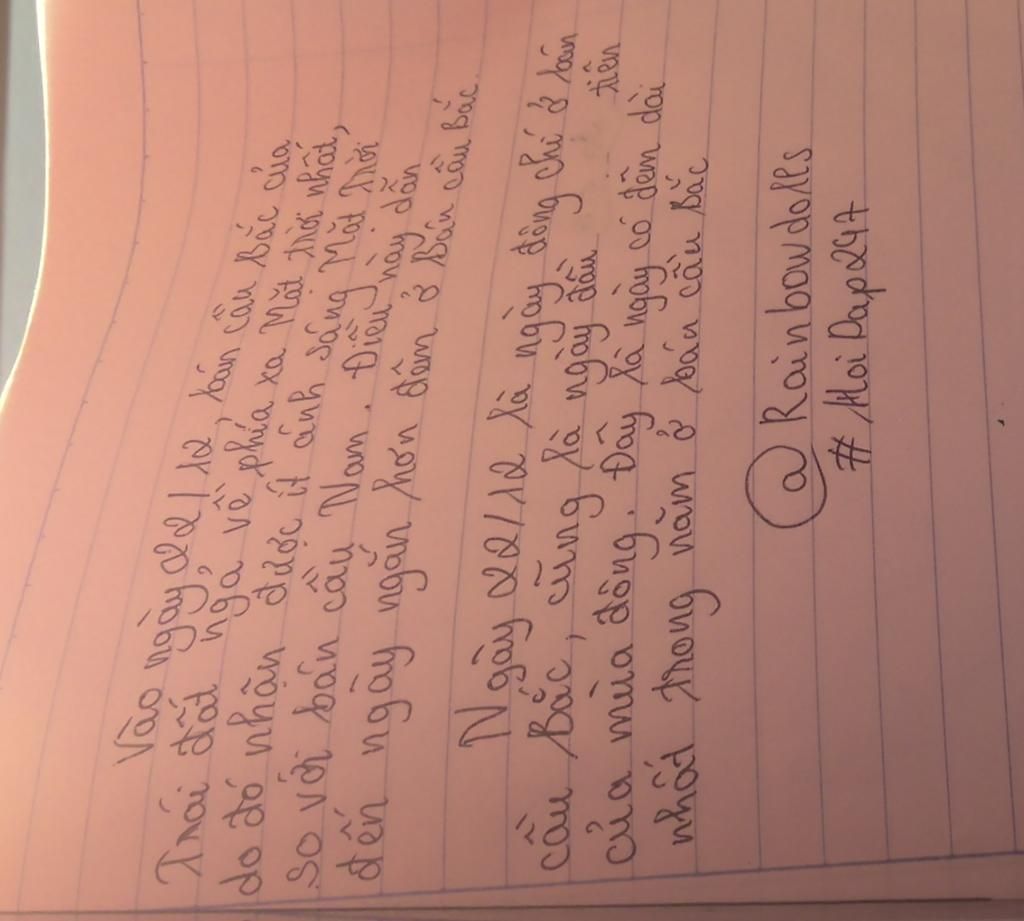 Vào ngày 22/12, bán cầu Bắc của
Trái đất ngả về phía xa Mặt Trời nhất,
do đó nhận được ít ánh sáng Mặt Trời
so với bán cầu Nam. Điều này dẫn
đến ngày ngắn hơn đêm ở Bán cầu Bắc.
Ngày 22/12 là ngày đông chí ở bán
cầu Bắc, cũng là ngày đầu tiên
của mùa đông. Đây là ngày có đêm dài
nhất trong năm ở bán cầu Bắc
@Rainbowdolls
#HoiDap247